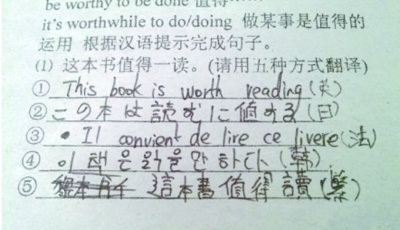 be worthy to be done 值得
it's worthwhile to do/doing 做某事是值得的
运用 根据汉语提示完成句子。
(1) 这本书值得一读。(请用五种方式翻译)
① This book is worth reading (英)
② この本は読むに値する (日)
③ Il convient de lire ce livere (法)
④ 이 책은 읽을만 하다 (韩)
⑤ 這本書值得讀 (繁)